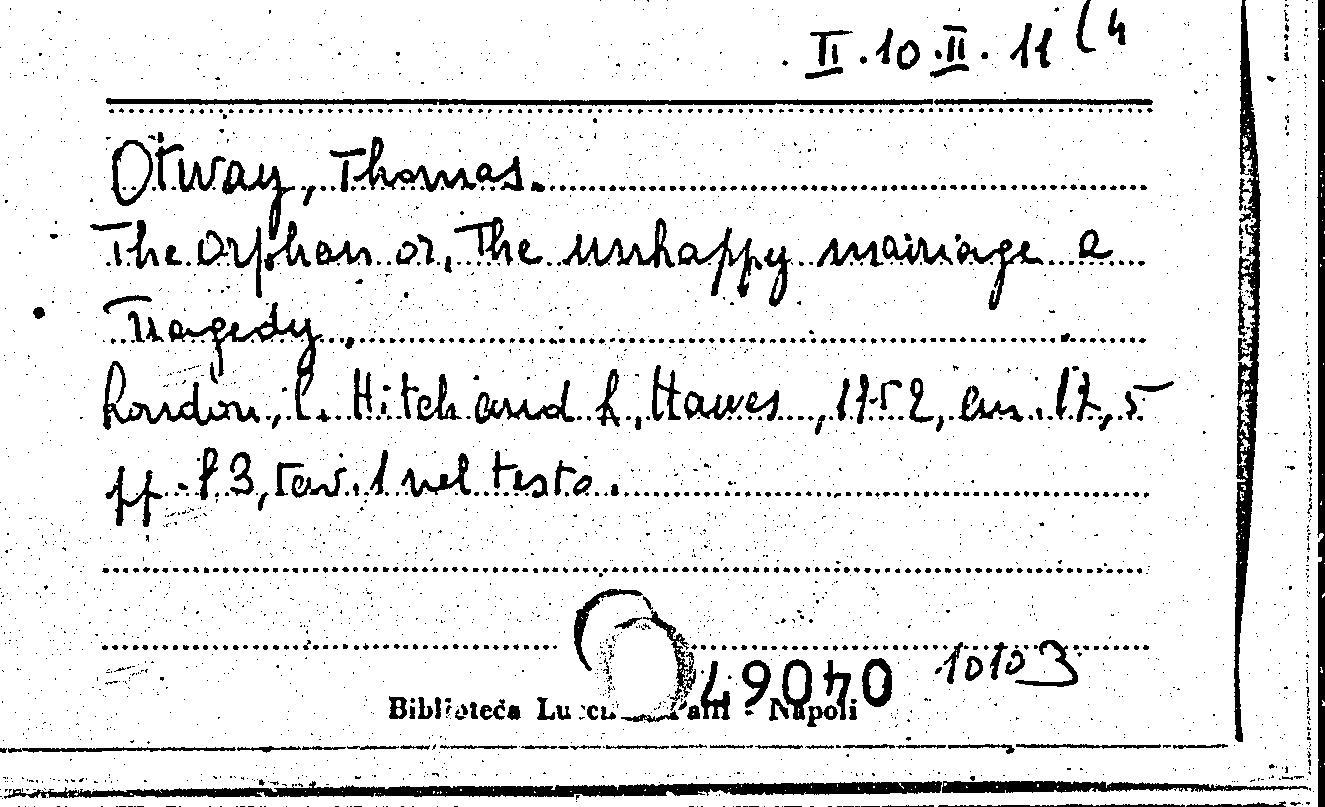 II.10.II.11(4
Otway, Thomas.
The Orphan or, The unhappy mariage a
Tragedy.
London, C. Hitch and L. Hawes, 1752, cm. 17,5
pp. 83, tav. 1 nel testo.
10103
04067
Biblioteca Lucchesi Palli - Napoli